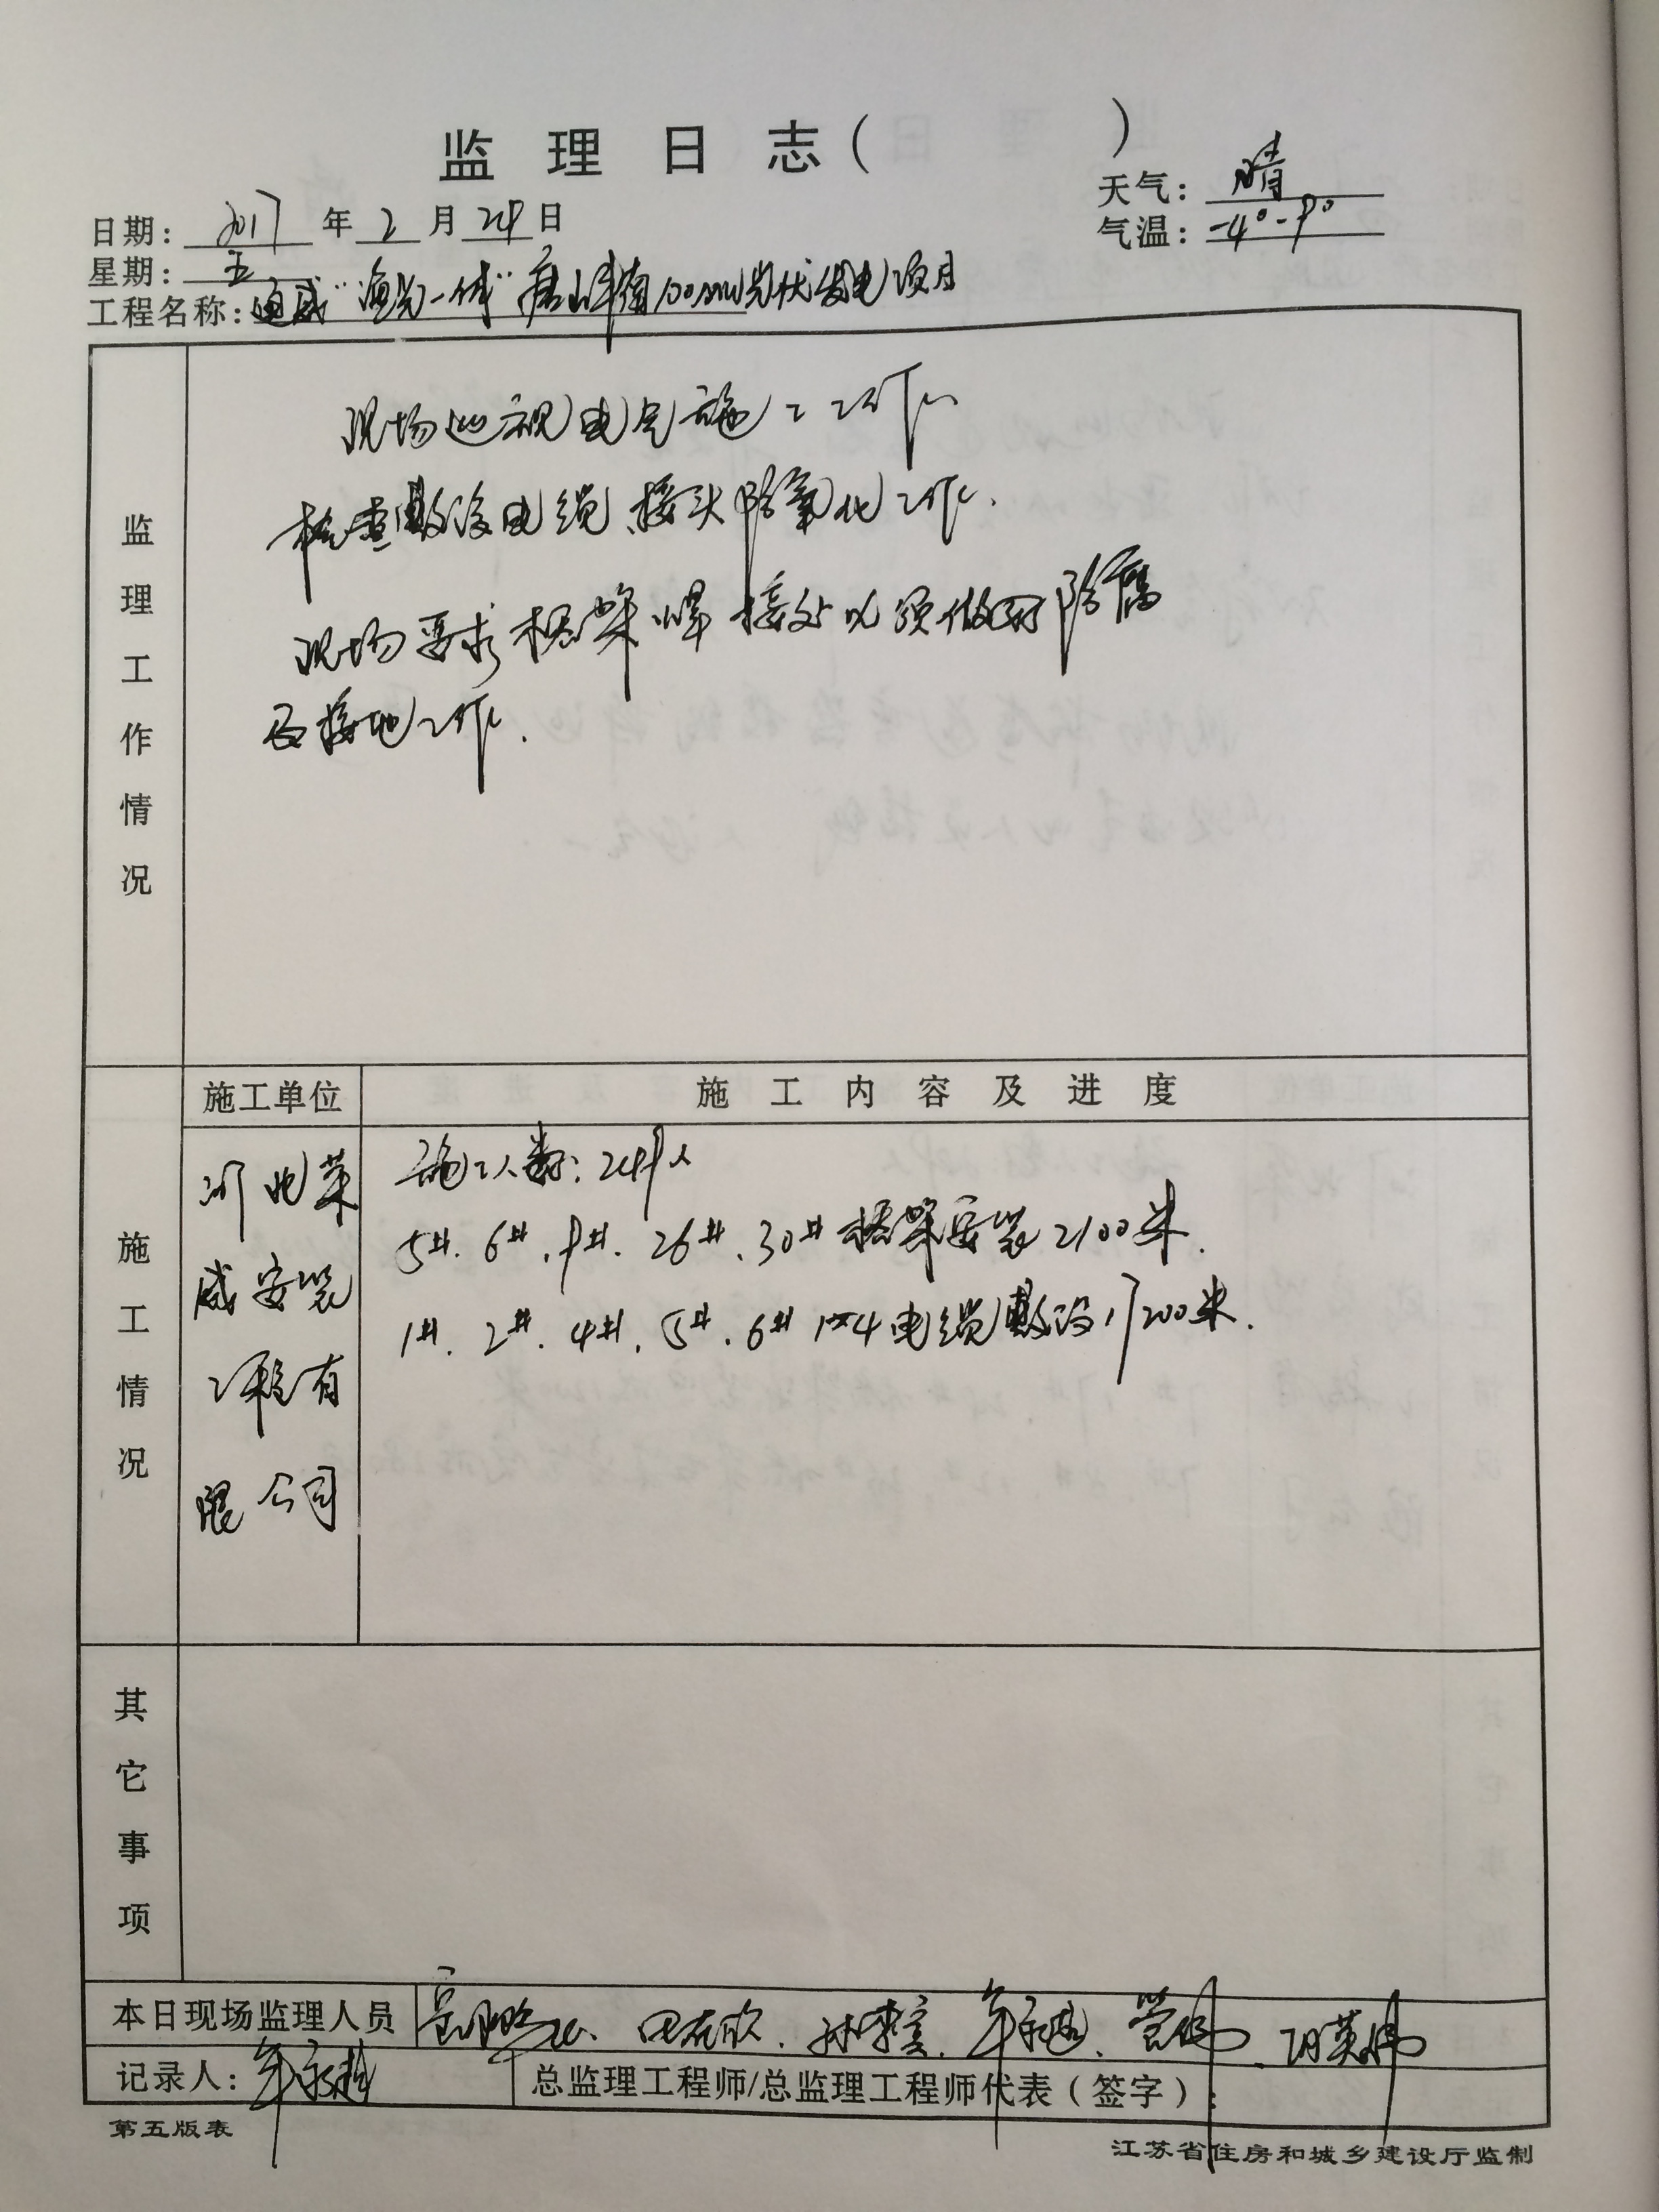 监理日志（ ）
天气：晴
日期：2017年2月24日
气温：-4°-9°
星期：五
工程名称：通威"渔光一体"唐山丰南100MW光伏发电项目
监理工作情况
现场巡视电气施工工作。
检查敷设电缆、接头防氧化工作.
现场要求桥架焊接处必须做好防腐
及接地工作.
施工情况
施工单位
施工内容及进度
河北荣
威安装
工程有
限公司
施工人数:249人
5#.6#.9#.26#.30#桥架安装2100米.
1#.2#.4#.5#.6# 1*4电缆敷设17200米.
其它事项
本日现场监理人员
记录人：
总监理工程师/总监理工程师代表（签字）：
第五版表
江苏省住房和城乡建设厅监制